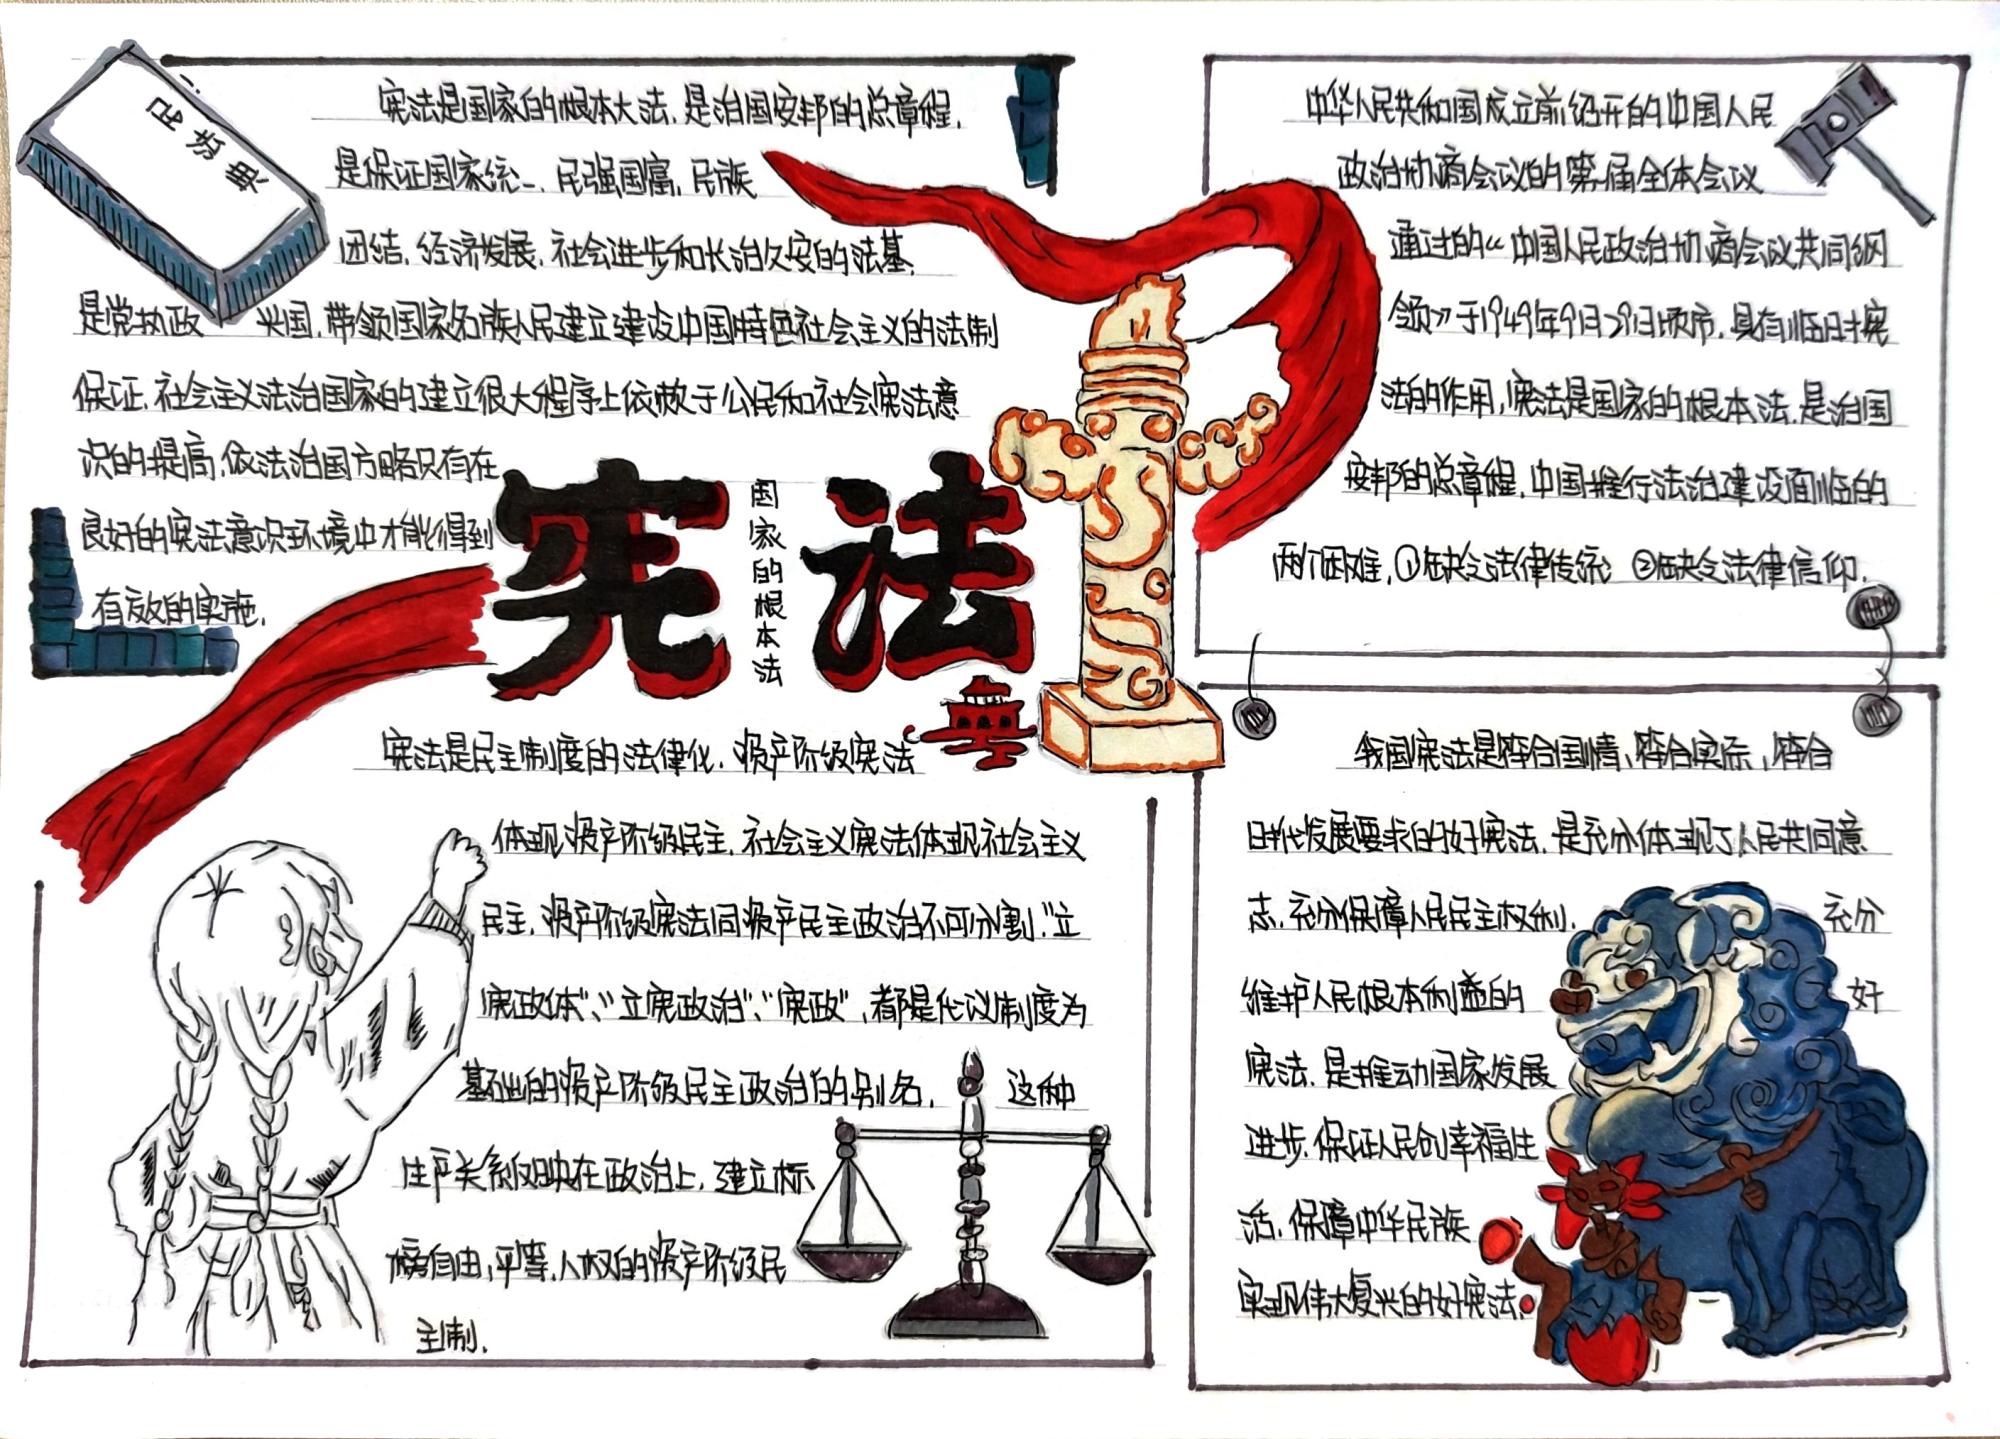 宪法是国家的根本大法,是治国安邦的总章程,
是保证国家统一、民强国富,民族
团结,经济发展,社会进步和长治久安的法基,
是党执政 兴国,带领国家各族人民建立建设中国特色社会主义的法制
保证,社会主义法治国家的建立很大程序上依赖于公民和社会宪法意
识的提高,依法治国方略只有在
良好的宪法意识环境中才能得到
有效的实施,
宪法
国家的根本法
宪法是民主制度的法律化,资产阶级宪法
体现资产阶级民主,社会主义宪法体现社会主义
民主,资产阶级宪法同资产民主政治不可分割,"立
宪政体"、"立宪政治"、"宪政",都是代议制度为
基础的资产阶级民主政治的别名, 这种
生产关系反映在政治上,建立标
榜自由,平等,人权的资产阶级民
主制,
中华人民共和国成立前绍开的中国人民
政治协商会议的第一届全体会议
通过的《中国人民政治协商会议共同纲
领》于1949年9月29日颁布,具有临时宪
法的作用,宪法是国家的根本法,是治国
安邦的总章程,中国推行法治建设面临的
两个困难,①缺乏法律传统 ②缺乏法律信仰,
我国宪法是符合国情、符合实际,符合
时代发展要求的好宪法,是充分体现了人民共同意
志,充分保障人民民主权利, 充分
维护人民根本利益的 好
宪法,是推动国家发展
进步,保证人民创幸福生
活,保障中华民族
实现伟大复兴的好宪法,